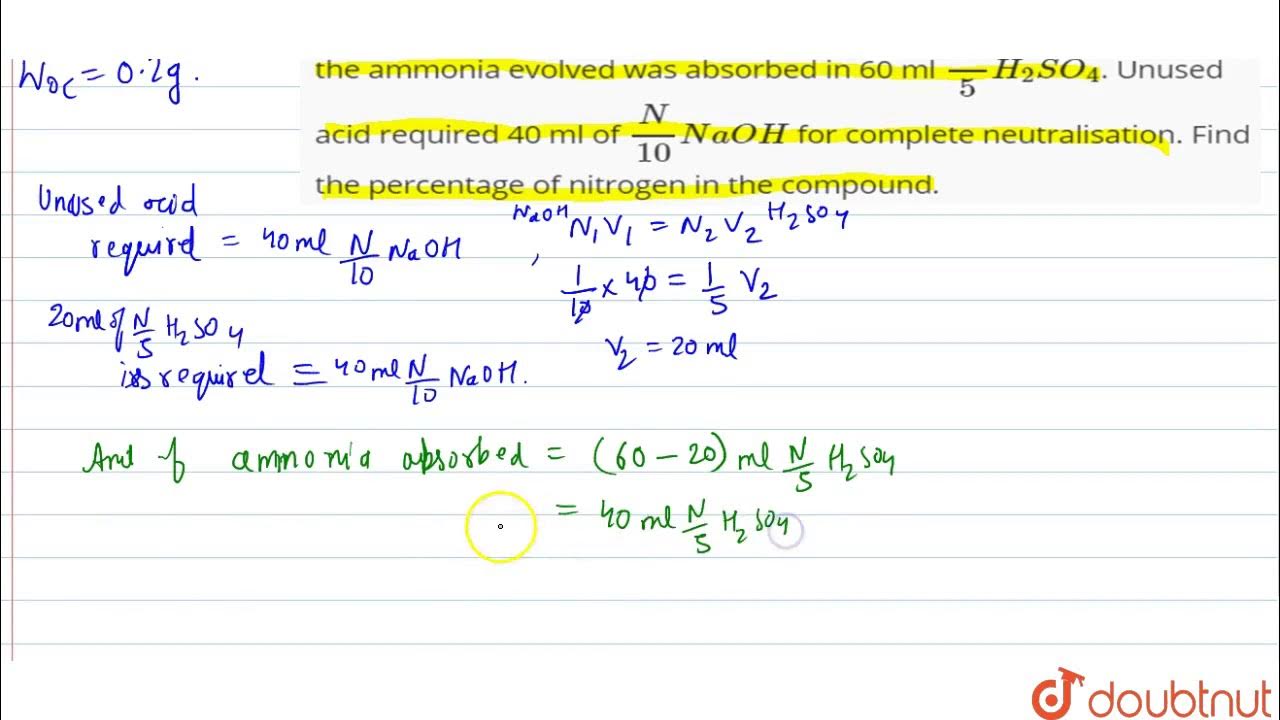 W_OC = 0.2g.
the ammonia evolved was absorbed in 60 ml —/5 H₂SO₄. Unused
acid required 40 ml of N/10 NaOH for complete neutralisation. Find
the percentage of nitrogen in the compound.
Unused acid
required = 40 ml N/10 NaOH
NaOH N₁V₁ = N₂V₂ H₂SO₄
,
1/10 × 40 = 1/5 V₂
V₂ = 20 ml
20 ml of N/5 H₂SO₄
is required = 40 ml N/10 NaOH.
Amt of ammonia absorbed = (60 – 20) ml N/5 H₂SO₄
= 40 ml N/5 H₂SO₄
doubtnut